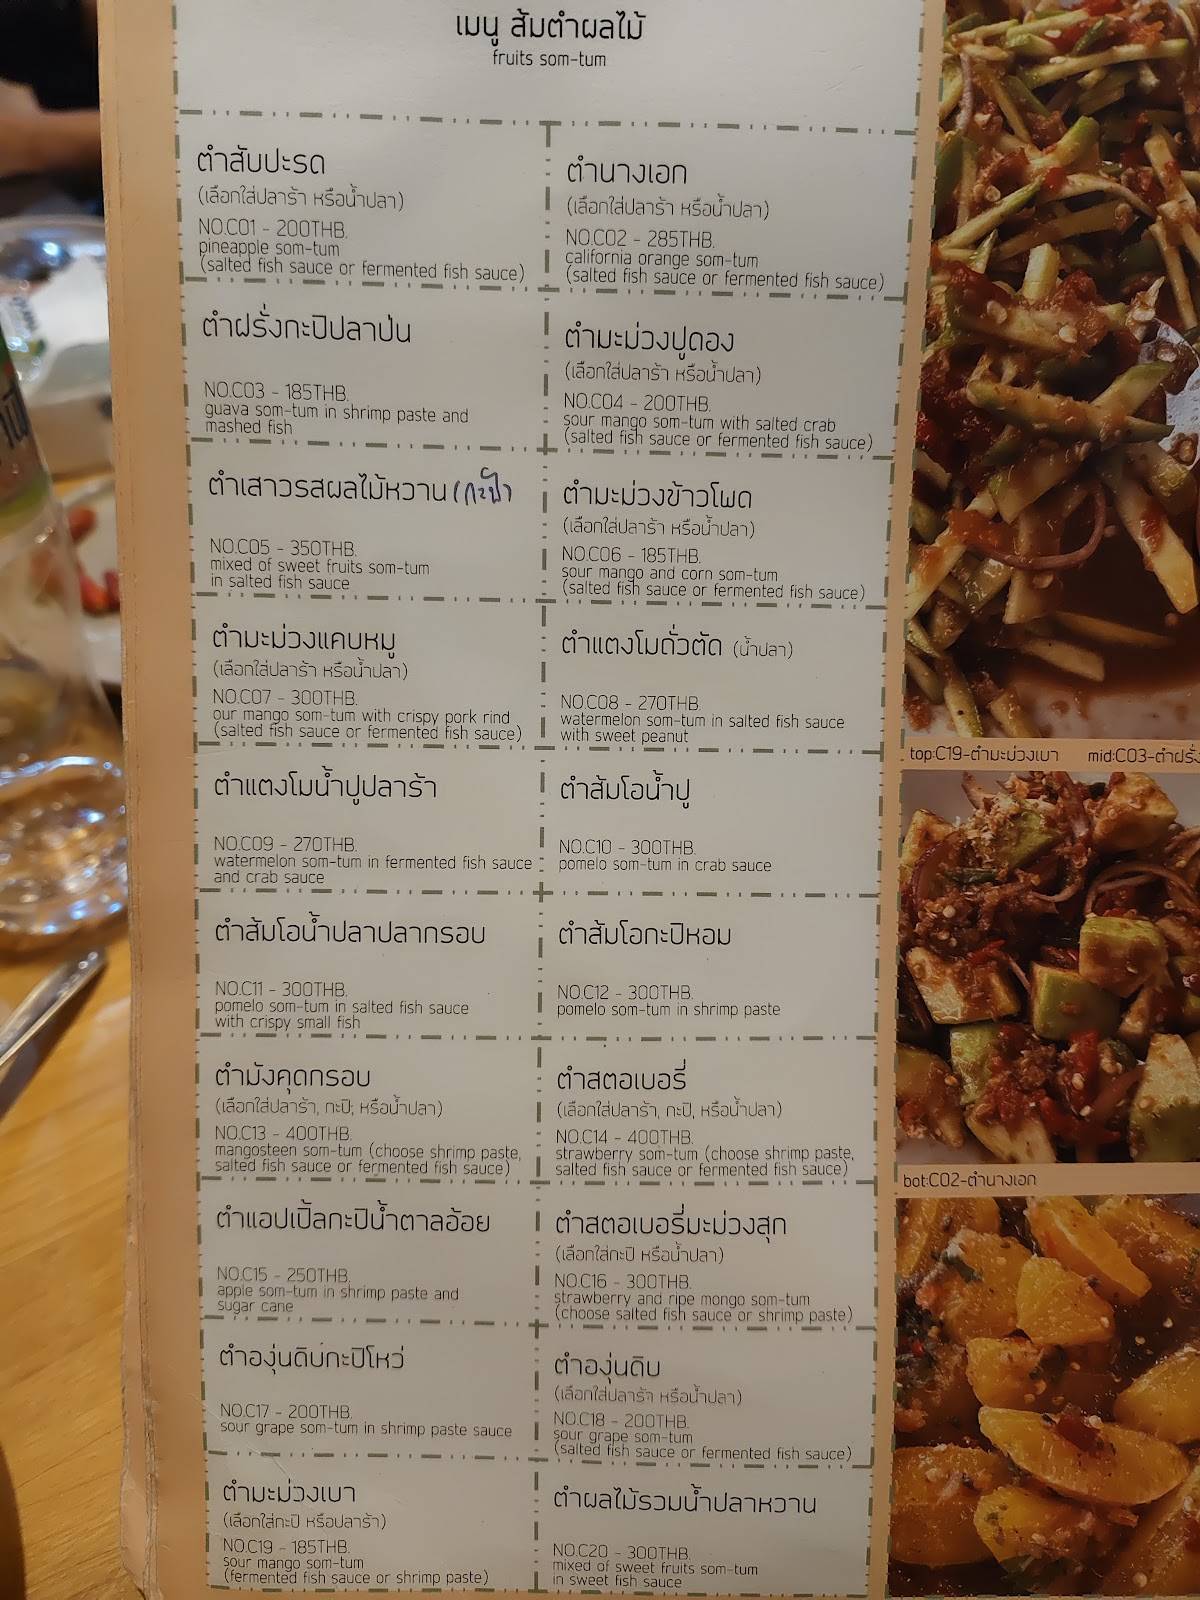 เมนู ส้มตำผลไม้
fruits som-tum
ตำสับปะรด
(เลือกใส่ปลาร้า หรือน้ำปลา)
NO.C01 - 200THB.
pineapple som-tum
(salted fish sauce or fermented fish sauce)
ตำนางเอก
(เลือกใส่ปลาร้า หรือน้ำปลา)
NO.C02 - 285THB.
california orange som-tum
(salted fish sauce or fermented fish sauce)
ตำฝรั่งกะปิปลาป่น
NO.C03 - 185THB.
guava som-tum in shrimp paste and
mashed fish
ตำมะม่วงปูดอง
(เลือกใส่ปลาร้า หรือน้ำปลา)
NO.C04 - 200THB.
sour mango som-tum with salted crab
(salted fish sauce or fermented fish sauce)
ตำเสาวรสผลไม้หวาน (กะปิ)
NO.C05 - 350THB.
mixed of sweet fruits som-tum
in salted fish sauce
ตำมะม่วงข้าวโพด
(เลือกใส่ปลาร้า หรือน้ำปลา)
NO.C06 - 185THB.
sour mango and corn som-tum
(salted fish sauce or fermented fish sauce)
ตำมะม่วงแคบหมู
(เลือกใส่ปลาร้า หรือน้ำปลา)
NO.C07 - 300THB.
our mango som-tum with crispy pork rind
(salted fish sauce or fermented fish sauce)
ตำแตงโมถั่วตัด (น้ำปลา)
NO.C08 - 270THB.
watermelon som-tum in salted fish sauce
with sweet peanut
ตำแตงโมน้ำปูปลาร้า
NO.C09 - 270THB.
watermelon som-tum in fermented fish sauce
and crab sauce
ตำส้มโอน้ำปู
NO.C10 - 300THB.
pomelo som-tum in crab sauce
ตำส้มโอน้ำปลาปลากรอบ
NO.C11 - 300THB.
pomelo som-tum in salted fish sauce
with crispy small fish
ตำส้มโอกะปิหอม
NO.C12 - 300THB.
pomelo som-tum in shrimp paste
ตำมังคุดกรอบ
(เลือกใส่ปลาร้า, กะปิ, หรือน้ำปลา)
NO.C13 - 400THB.
mangosteen som-tum (choose shrimp paste,
salted fish sauce or fermented fish sauce)
ตำสตอเบอรี่
(เลือกใส่ปลาร้า, กะปิ, หรือน้ำปลา)
NO.C14 - 400THB.
strawberry som-tum (choose shrimp paste,
salted fish sauce or fermented fish sauce)
ตำแอปเปิ้ลกะปิน้ำตาลอ้อย
NO.C15 - 250THB.
apple som-tum in shrimp paste and
sugar cane
ตำสตอเบอรี่มะม่วงสุก
(เลือกใส่กะปิ หรือน้ำปลา)
NO.C16 - 300THB.
strawberry and ripe mongo som-tum
(choose salted fish sauce or shrimp paste)
ตำองุ่นดิบกะปิโหว่
NO.C17 - 200THB.
sour grape som-tum in shrimp paste sauce
ตำองุ่นดิบ
(เลือกใส่ปลาร้า หรือน้ำปลา)
NO.C18 - 200THB.
sour grape som-tum
(salted fish sauce or fermented fish sauce)
ตำมะม่วงเบา
(เลือกใส่กะปิ หรือปลาร้า)
NO.C19 - 185THB.
sour mango som-tum
(fermented fish sauce or shrimp paste)
ตำผลไม้รวมน้ำปลาหวาน
NO.C20 - 300THB.
mixed of sweet fruits som-tum
in sweet fish sauce
top:C19-ตำมะม่วงเบา mid:C03-ตำฝรั่ง
bot:C02-ตำนางเอก